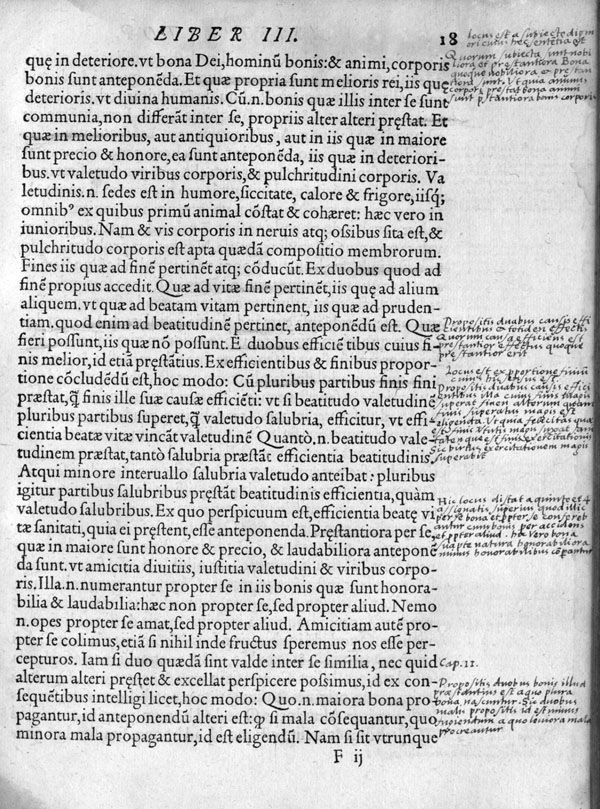 LIBER III.
18
quę in deteriore. vt bona Dei, hominũ bonis: & animi, corporis
bonis sunt anteponẽda. Et quæ propria sunt melioris rei, iis quę
deterioris. vt diuina humanis. Cũ.n. bona quæ illis inter se sunt
communia, non differãt inter se, propriis alter alteri pręstat. Et
quæ in melioribus, aut antiquioribus, aut in iis quæ in maiore
sunt precio & honore, ea sunt anteponẽda, iis quæ in deteriori-
bus. vt valetudo viribus corporis, & pulchritudini corporis. Va
letudinis.n. sedes est in humore, siccitate, calore & frigore, iisq;
omnibꝰ ex quibus primũ animal cõstat & cohæret: hæc vero in
iunioribus. Nam & vis corporis in neruis atq; ossibus sita est, &
pulchritudo corporis est apta quædã compositio membrorum.
Fines iis quæ ad finẽ pertinẽt atq; cõducũt. Ex duobus quod ad
finẽ propius accedit. Quæ ad vitæ finẽ pertinẽt, iis quę ad alium
aliquem. vt quæ ad beatam vitam pertinent, iis quæ ad pruden-
tiam. quod enim ad beatitudinẽ pertinet, anteponẽdũ est. Quæ
fieri possunt, iis quæ nõ possunt. E duobus efficiẽtibus cuius fi-
nis melior, id etiã pręstãtius. Ex efficientibus & finibus propor-
tione cõcludẽdũ est, hoc modo: Cũ pluribus partibus finis fini
præstat, ꝗ̃ finis ille suæ causæ efficiẽti: vt si beatitudo valetudinẽ
pluribus partibus superet, ꝗ̃ valetudo salubria, efficitur, vt effi-
cientia beatæ vitæ vincãt valetudinẽ Quantò.n. beatitudo vale-
tudinem præstat, tantò salubria præstãt efficientia beatitudinis.
Atqui minore interuallo salubria valetudo anteibat: pluribus
igitur partibus salubribus pręstãt beatitudinis efficientia, quàm
valetudo salubribus. Ex quo perspicuum est, efficientia beatę vi
tæ sanitati, quia ei pręstent, esse anteponenda. Pręstantiora per se,
quæ in maiore sunt honore & precio, & laudabiliora anteponẽ
da sunt. vt amicitia diuitiis, iustitia valetudini & viribus corpo-
ris. Illa.n. numerantur propter se in iis bonis quæ sunt honora-
bilia & laudabilia: hæc non propter se, sed propter aliud. Nemo
.n. opes propter se amat, sed propter aliud. Amicitiam autẽ pro-
pter se colimus, etiã si nihil inde fructus speremus nos esse per-
cepturos. Iam si duo quædã sint valde inter se similia, nec quid
alterum alteri pręstet & excellat perspicere possimus, id ex con-
sequẽtibus intelligi licet, hoc modo: Quo.n. maiora bona pro-
pagantur, id anteponendũ alteri est: ꝙ si mala cõsequantur, quo
minora mala propagantur, id est eligendũ. Nam si sit vtrunque
F ij
Quorum subiecta sunt nobi
liora et prestantiora Bona
quoque nobiliora et prestan
tiora sunt. Vt quia animus
corpori prestat bona animi
sunt prestantiora bonis corporis
Propositis duabus causis effi
cientibus & totidem effectis
Quorum causa efficiens est
prestantior effectus quoque
prestantior erit
Locus est ex proportione finium
Cap. 11.
Propositis duobus bonis illud
prestantius est a quo plura
bona nascuntur. Sic duobus
malis propositis id est minus
fugiendum a quo leuiora mala
procreantur